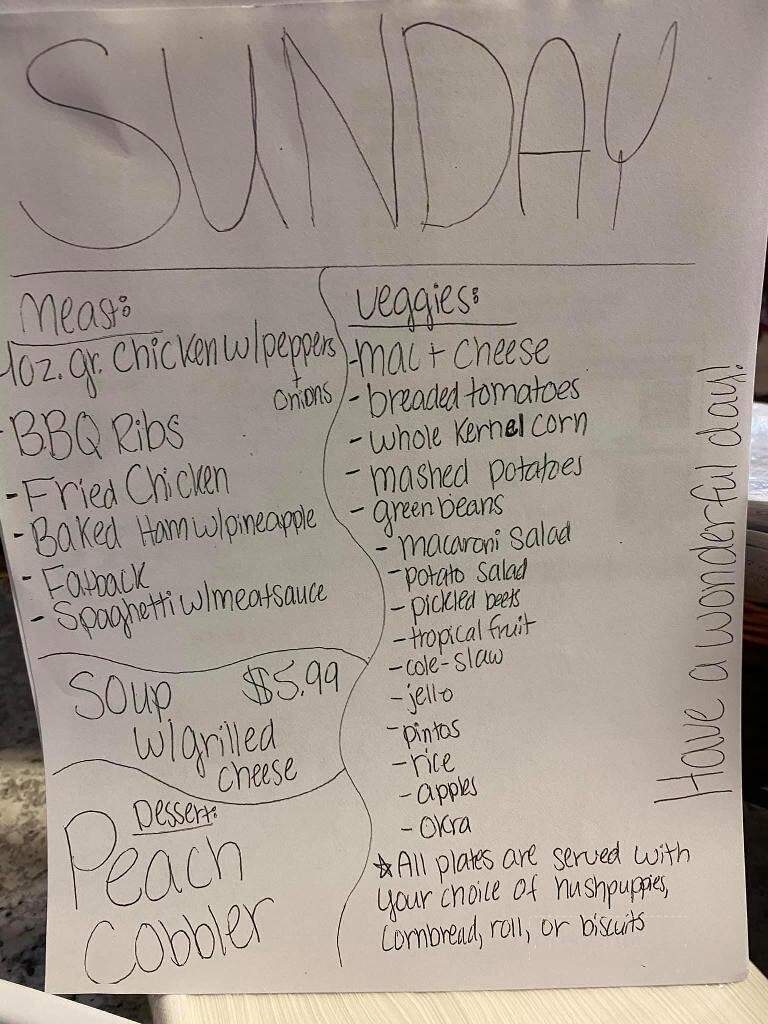 SUNDAY
Meast:
4oz. gr. Chicken w/peppers
+
onions
- BBQ Ribs
- Fried Chicken
- Baked Ham w/pineapple
- Fatback
- Spaghetti w/meatsauce
Soup $5.99
w/grilled
cheese
Dessert:
Peach
Cobbler
veggies:
- mac + cheese
- breaded tomatoes
- whole Kernel corn
- mashed potatoes
- green beans
- macaroni salad
- potato salad
- pickled beets
- tropical fruit
- cole-slaw
- jello
- pintos
- rice
- apples
- okra
☆ All plates are served with
your choice of hushpuppies,
cornbread, roll, or biscuits
Have a wonderful day!